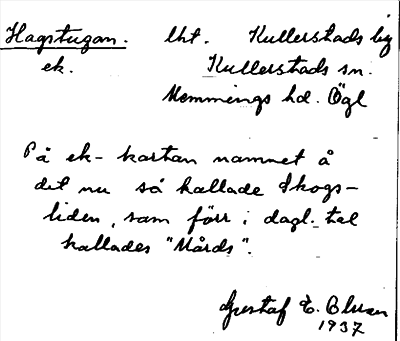 Hagstugan. lht. Kullerstads by
ek. Kullerstads sn.
Memmings hd. Ögl
På ek-kartan namnet å
det nu så kallade Skogs-
liden, som förr i dagl. tal
kallades "Mårds".
Gustaf E.
1937